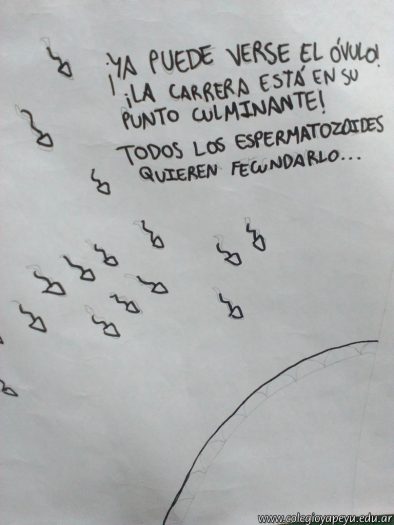 ¡YA PUEDE VERSE EL ÓVULO!
¡LA CARRERA ESTÁ EN SU
PUNTO CULMINANTE!
TODOS LOS ESPERMATOZOIDES
QUIEREN FECUNDARLO...
www.colegioyapeyu.edu.ar